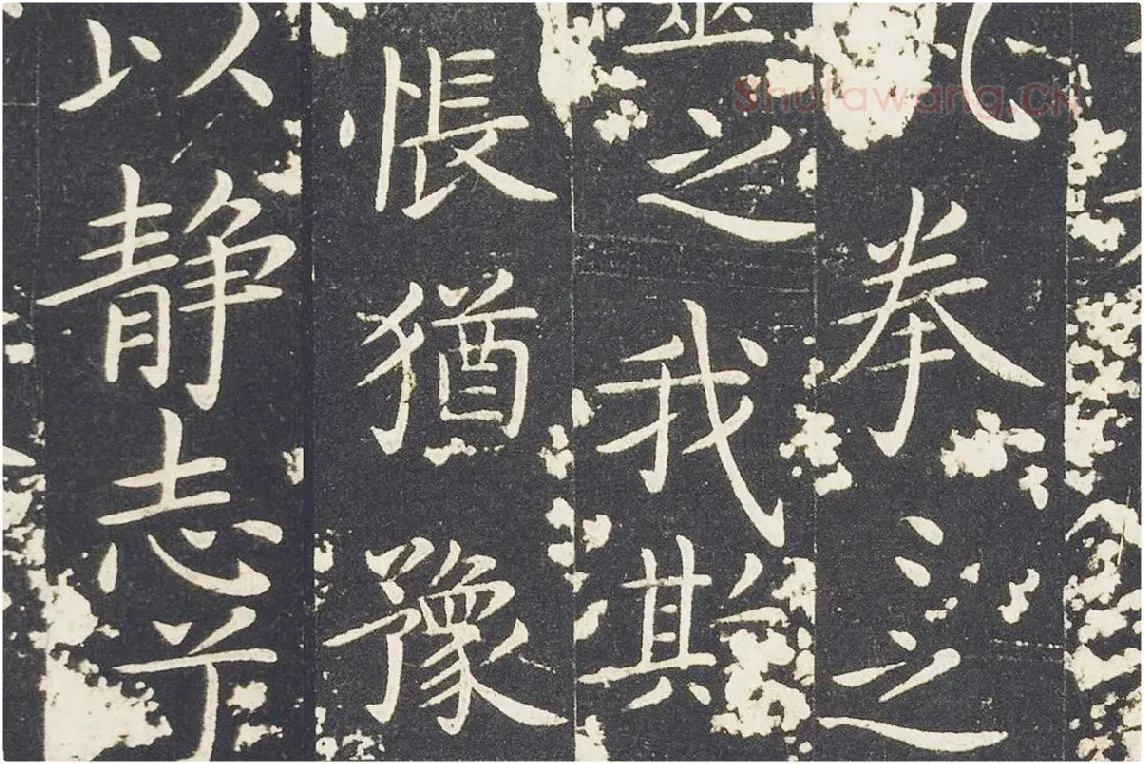 拳〻之
之我欺
悵猶豫
以静志兮
Shufawang.CN